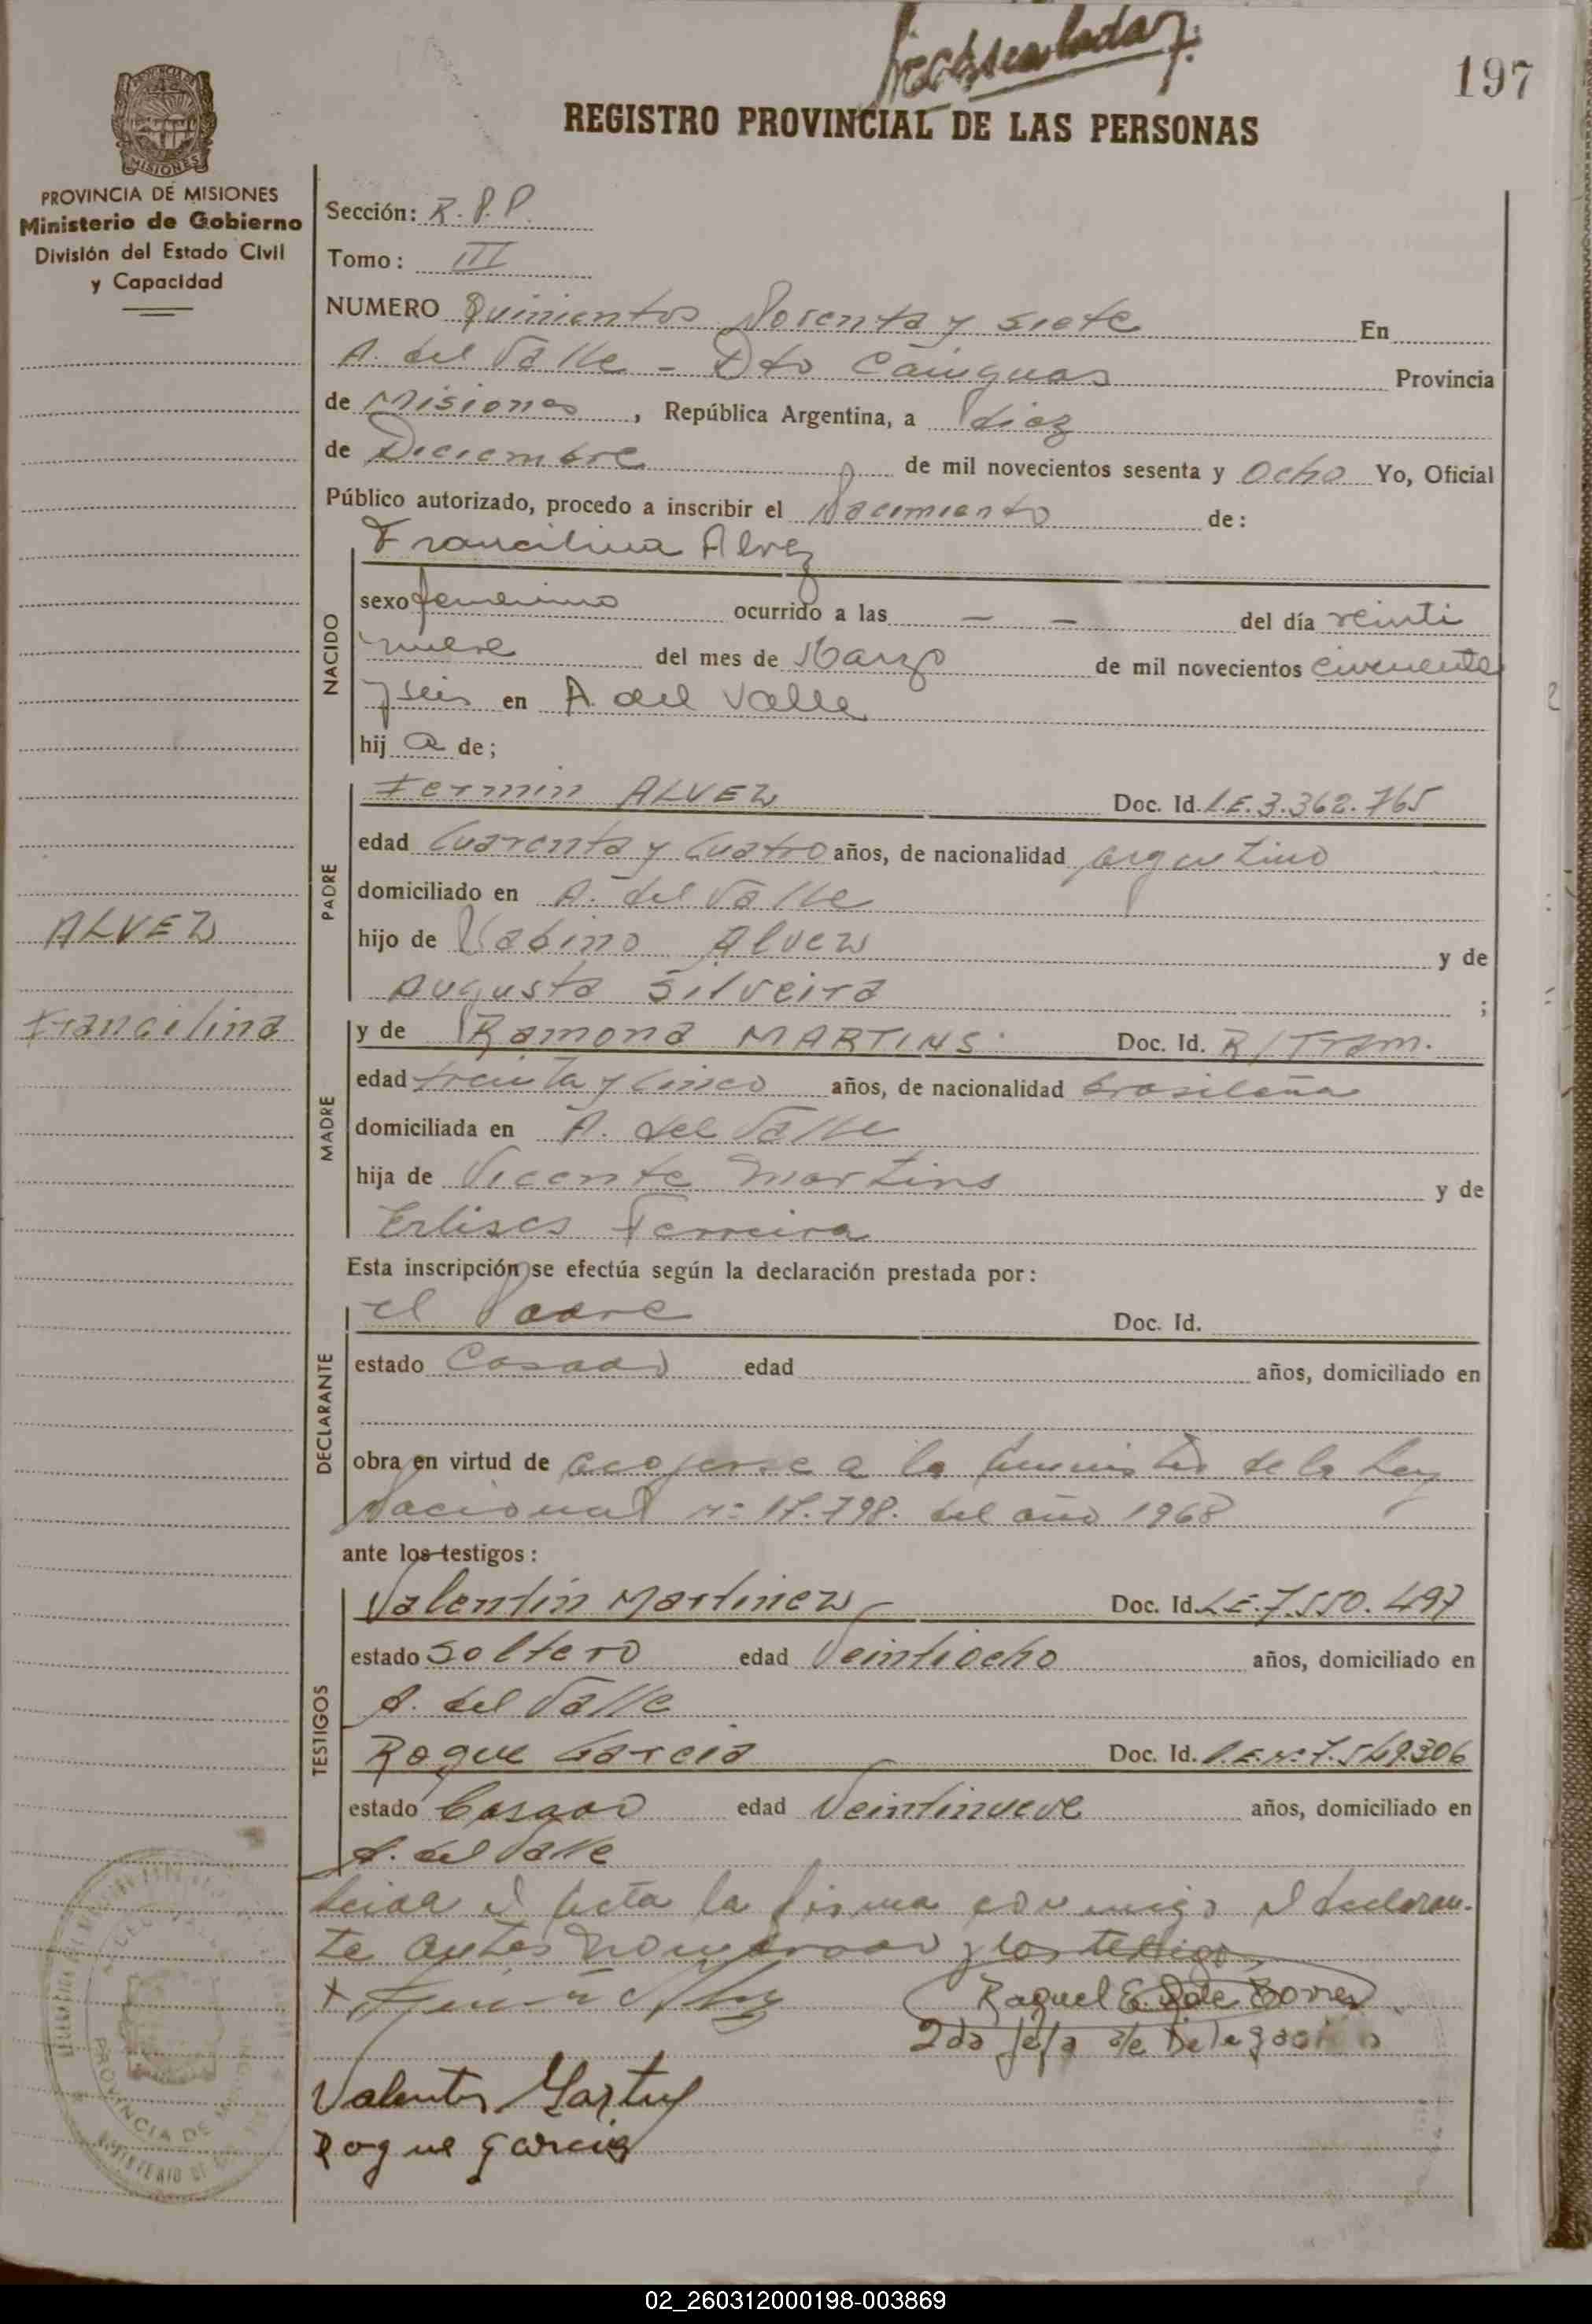 197
REGISTRO PROVINCIAL DE LAS PERSONAS
PROVINCIA DE MISIONES
Ministerio de Gobierno
División del Estado Civil
y Capacidad
Sección: R. P. P.
Tomo: III
NUMERO Quinientos Noventa y siete En
A. del Valle - Dto Cainguas Provincia
de Misiones, República Argentina, a diez
de Diciembre de mil novecientos sesenta y Ocho Yo, Oficial
Público autorizado, procedo a inscribir el Nacimiento de:
Francilina Alvez
NACIDO
sexo femenino ocurrido a las — — del día veinti
nueve del mes de Marzo de mil novecientos cincuenta
y seis en A. del Valle
hij a de;
PADRE
Fermin ALVEZ Doc. Id. L.E. 3.362.765
edad Cuarenta y Cuatro años, de nacionalidad argentino
domiciliado en A. del Valle
hijo de Alvez y de
Augusta Silveira ;
ALVEZ
Francilina
MADRE
y de Ramona MARTINS Doc. Id. R/Tram.
edad treinta y cinco años, de nacionalidad brasileña
domiciliada en A. del Valle
hija de Vicente Martins y de
Ferreira
Esta inscripción se efectúa según la declaración prestada por:
DECLARANTE
el Padre Doc. Id.
estado Casado edad años, domiciliado en
obra en virtud de acojerse a la de la Ley
Nacional nº 17.798. del año 1968
ante los testigos:
TESTIGOS
Valentin Martinez Doc. Id. L.E. 7.550.497
estado soltero edad Veintiocho años, domiciliado en
A. del Valle
Roque Garcia Doc. Id. L.E. Nº 7.549.306
estado Casado edad Veintinueve años, domiciliado en
A. del Valle
Leida el acta la firma conmigo el declaran-
te antes nombrado y los testigos
Raquel E. de Torres
2da Jefa de Delegación
Valentin
Roque Garcia
PROVINCIA DE MISIONES
02_260312000198-003869